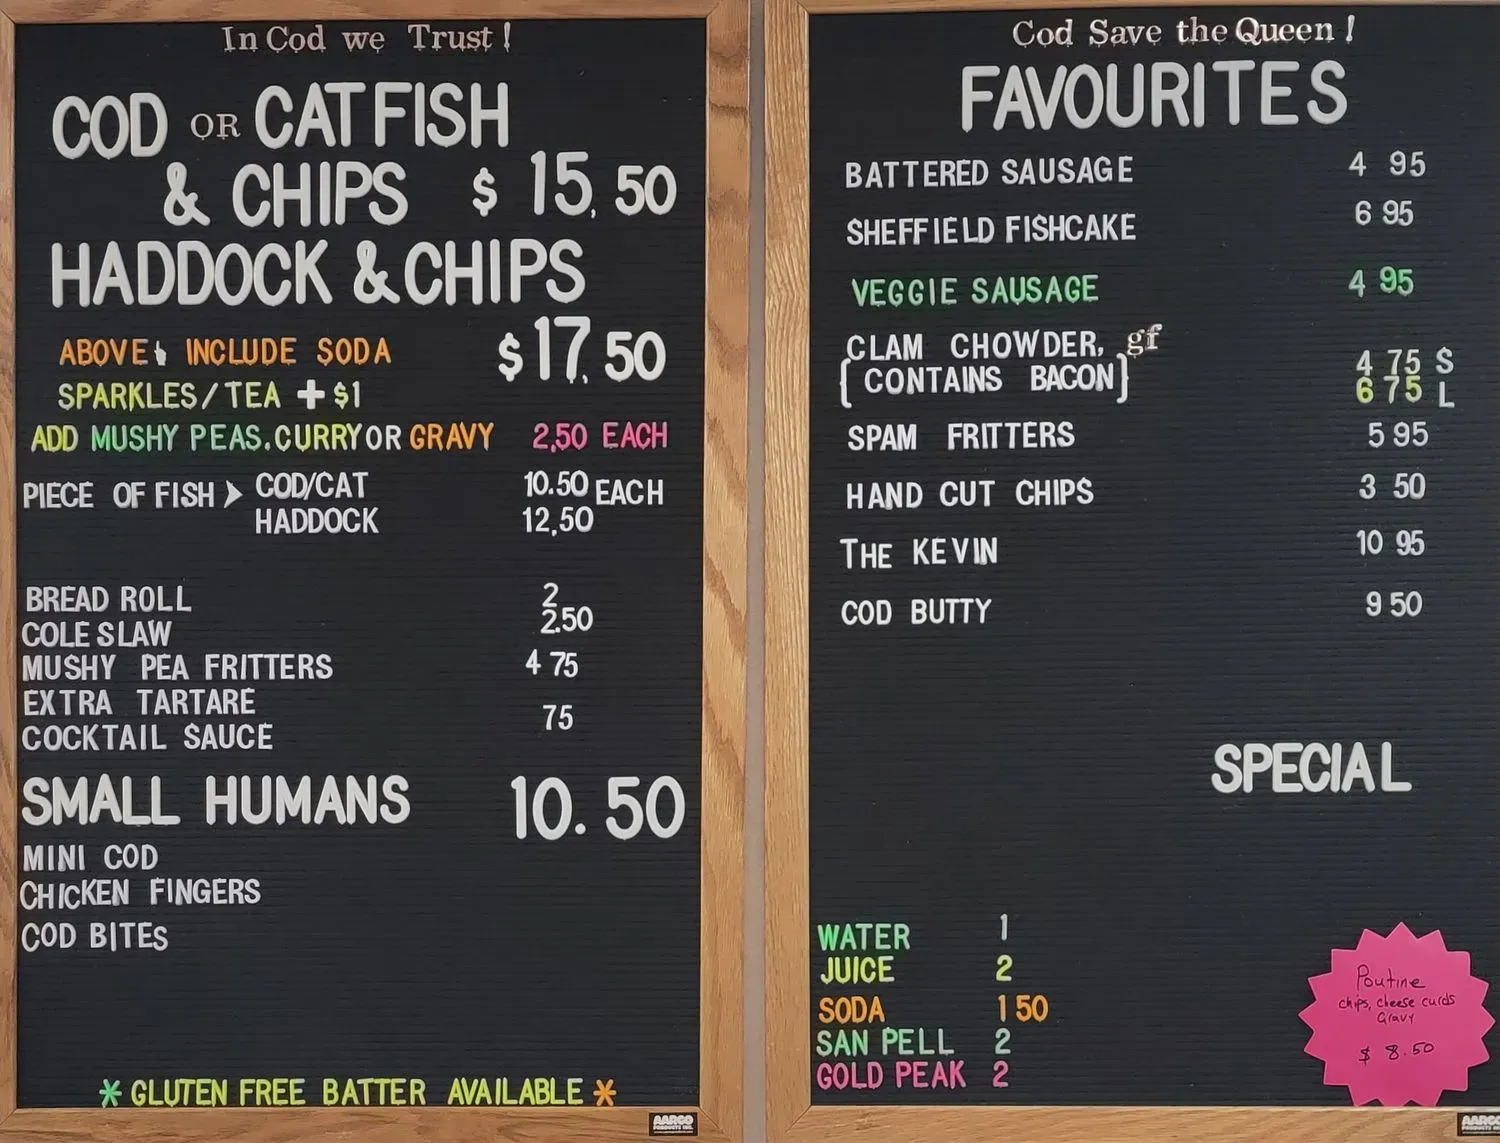 In Cod we Trust!
COD OR CATFISH
& CHIPS $ 15.50
HADDOCK & CHIPS
$17.50
ABOVE INCLUDE SODA
SPARKLES/TEA + $1
ADD MUSHY PEAS.CURRY OR GRAVY 2.50 EACH
PIECE OF FISH COD/CAT 10.50 EACH
HADDOCK 12.50
BREAD ROLL 2
COLE SLAW 2.50
MUSHY PEA FRITTERS 4 75
EXTRA TARTARE
COCKTAIL SAUCE 75
SMALL HUMANS 10.50
MINI COD
CHICKEN FINGERS
COD BITES
* GLUTEN FREE BATTER AVAILABLE *
AARCO
PRODUCTS INC.
Cod Save the Queen!
FAVOURITES
BATTERED SAUSAGE 4 95
SHEFFIELD FISHCAKE 6 95
VEGGIE SAUSAGE 4 95
CLAM CHOWDER, gf
[CONTAINS BACON] 4 75 S
6 75 L
SPAM FRITTERS 5 95
HAND CUT CHIPS 3 50
THE KEVIN 10 95
COD BUTTY 9 50
SPECIAL
WATER 1
JUICE 2
SODA 1 50
SAN PELL 2
GOLD PEAK 2
Poutine
chips, cheese curds
Gravy
$ 8.50
AARCO